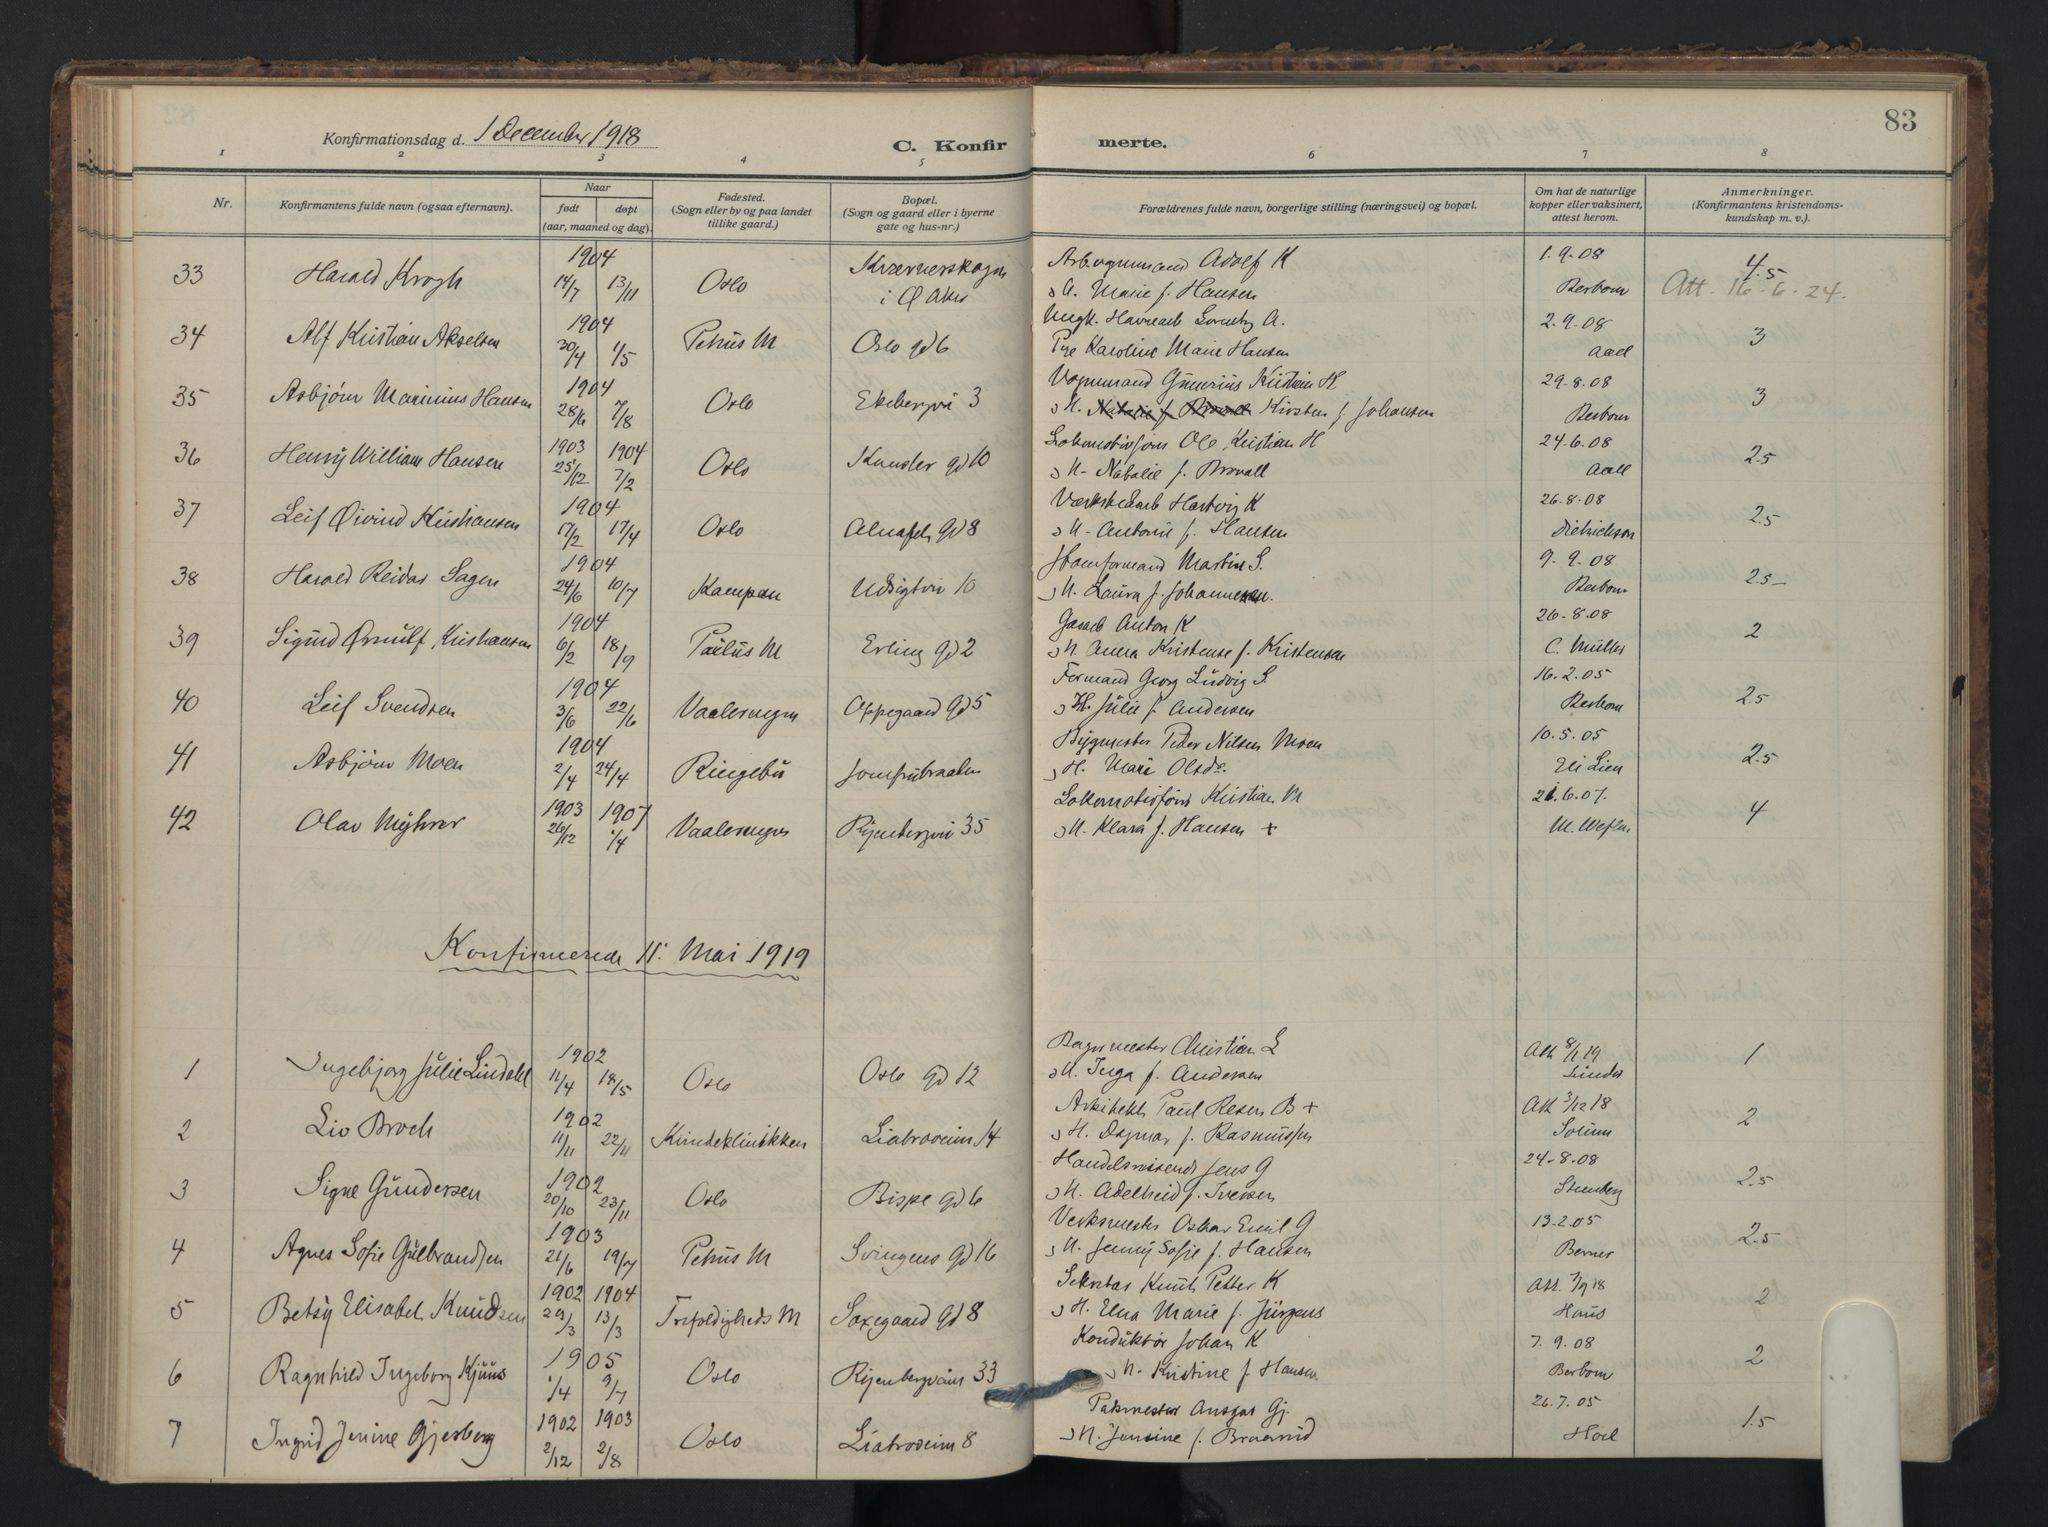 83
Konfirmationsdag d. 1 December 1918
C. Konfirmerte.
1 2 3 4 5 6 7 8
Nr.
Konfirmantens fulde navn (ogsaa efternavn).
Naar
født døpt
(aar, maaned og dag).
Fødested.
(Sogn eller by og paa landet
tillike gaard.)
Bopæl.
(Sogn og gaard eller i byerne
gate og hus-nr.)
Forældrenes fulde navn, borgerlige stilling (næringsvei) og bopæl.
Om hat de naturlige
kopper eller vaksinert,
attest herom.
Anmerkninger.
(Konfirmantens kristendoms-
kundskap m. v.).
1904 Kværnerskogen Adolf K 1.9.08 4.5
33 Harald Krogh 14/7 13/11 Oslo i Ø Aker Marie f. Hansen Berbom Att. 16-6-24.
1904 2.9.08
34 Alf Kristian Akselsen 30/4 1/5 Petrus M Oslo gd 6 Pge Karoline Marie Hansen Aall 3
1904 Vognmand Gunerius Kristian H. 29.8.08
35 Asbjørn Marinius Hansen 28/6 7/8 Oslo Ekebergvi 3 Kirsten f Johansen Berbom 3
1903 1904 Ole Kristian H 24.6.08
36 Henry William Hansen 25/12 7/2 Oslo Kansler gd 10 H. Natalie f. Brovall Aall 2.5
1904 Hartvig K 26.8.08
37 Leif Øivind Kristiansen 17/2 17/4 Oslo Alnafet gd 8 H. Antonie f. Hansen Dietrichson 2.5
1904 Martin S. 9.9.08
38 Harald Reidar Sagen 24/6 10/7 Kampen Udsigtvi 10 H. Laura f. Johannesen. Berbom 2.5
1904 Anton K 26.8.08
39 Sigurd Ørnulf Kristiansen 6/2 18/9 Paulus M Erling gd 2 H. Anna Kristense f. Kristensen C. Müller 2
1904 Formand Georg Ludvig S. 16.2.05
40 Leif Svendsen 3/6 22/6 Vaalerengen Oppegaard gd 5 H. Julie f. Andersen Berbom 2.5
1904 Bygmester Peder Nilsen Moen 10.5.05
41 Asbjørn Moen 2/4 24/4 Ringebu Jomfrubraaten H. Mari Olsd. Eli Lien 2.5
1903 1907 Kristian M 21.6.07.
42 Olav Myhrer 26/12 1/4 Vaalerengen Ryenbergvi 35 H. Klara f. Hansen + 4
Konfirmerede 11. Mai 1919
1902 Christian L Att 8/1 19
1 Ingebjørg Julie Lindahl 11/4 18/5 Oslo Oslo gd 12 H. Inga f. Andersen Linder 1
1902 Arkitekt Paul Resen B + Att 3/12 18
2 Liv Broch 11/11 22/11 Kvindeklinikken Liabroveien 14 H. Dagmar f. Rasmussen Solum 2
1902 Handelsreisende Jens G 24-8-08
3 Signe Gundersen 20/10 23/11 Oslo Bispe gd 6 H. Adelheid f. Iversen Steenberg 2.5
1903 Verksmester Oskar Emil G 13.2.05
4 Agnes Sofie Gulbrandsen 21/6 19/7 Petrus M Svingens gd 16 H. Jenny Sofie f. Hansen Berner 2.5
1902 1904 Sekretær Knut Petter K Att. 7/9 18
5 Betsy Elisabet Knudsen 29/3 13/3 Trefoldigheds M Saxegaard gd 8 H. Elna Marie f. Jürgens Haus 2
1905 Konduktør Johan K 7.9.08
6 Ragnhild Ingeborg Kjuus 1/4 9/7 Oslo Ryenbergveien 33 H. Kristine f. Hansen Berbom 2
1902 1903 Pakmester Ansgar Gj. 26.7.05
7 Ingrid Jenine Gjerberg 2/12 2/8 Oslo Liabroveien 8 H. Jensine f. Braarud Hoel 1.5